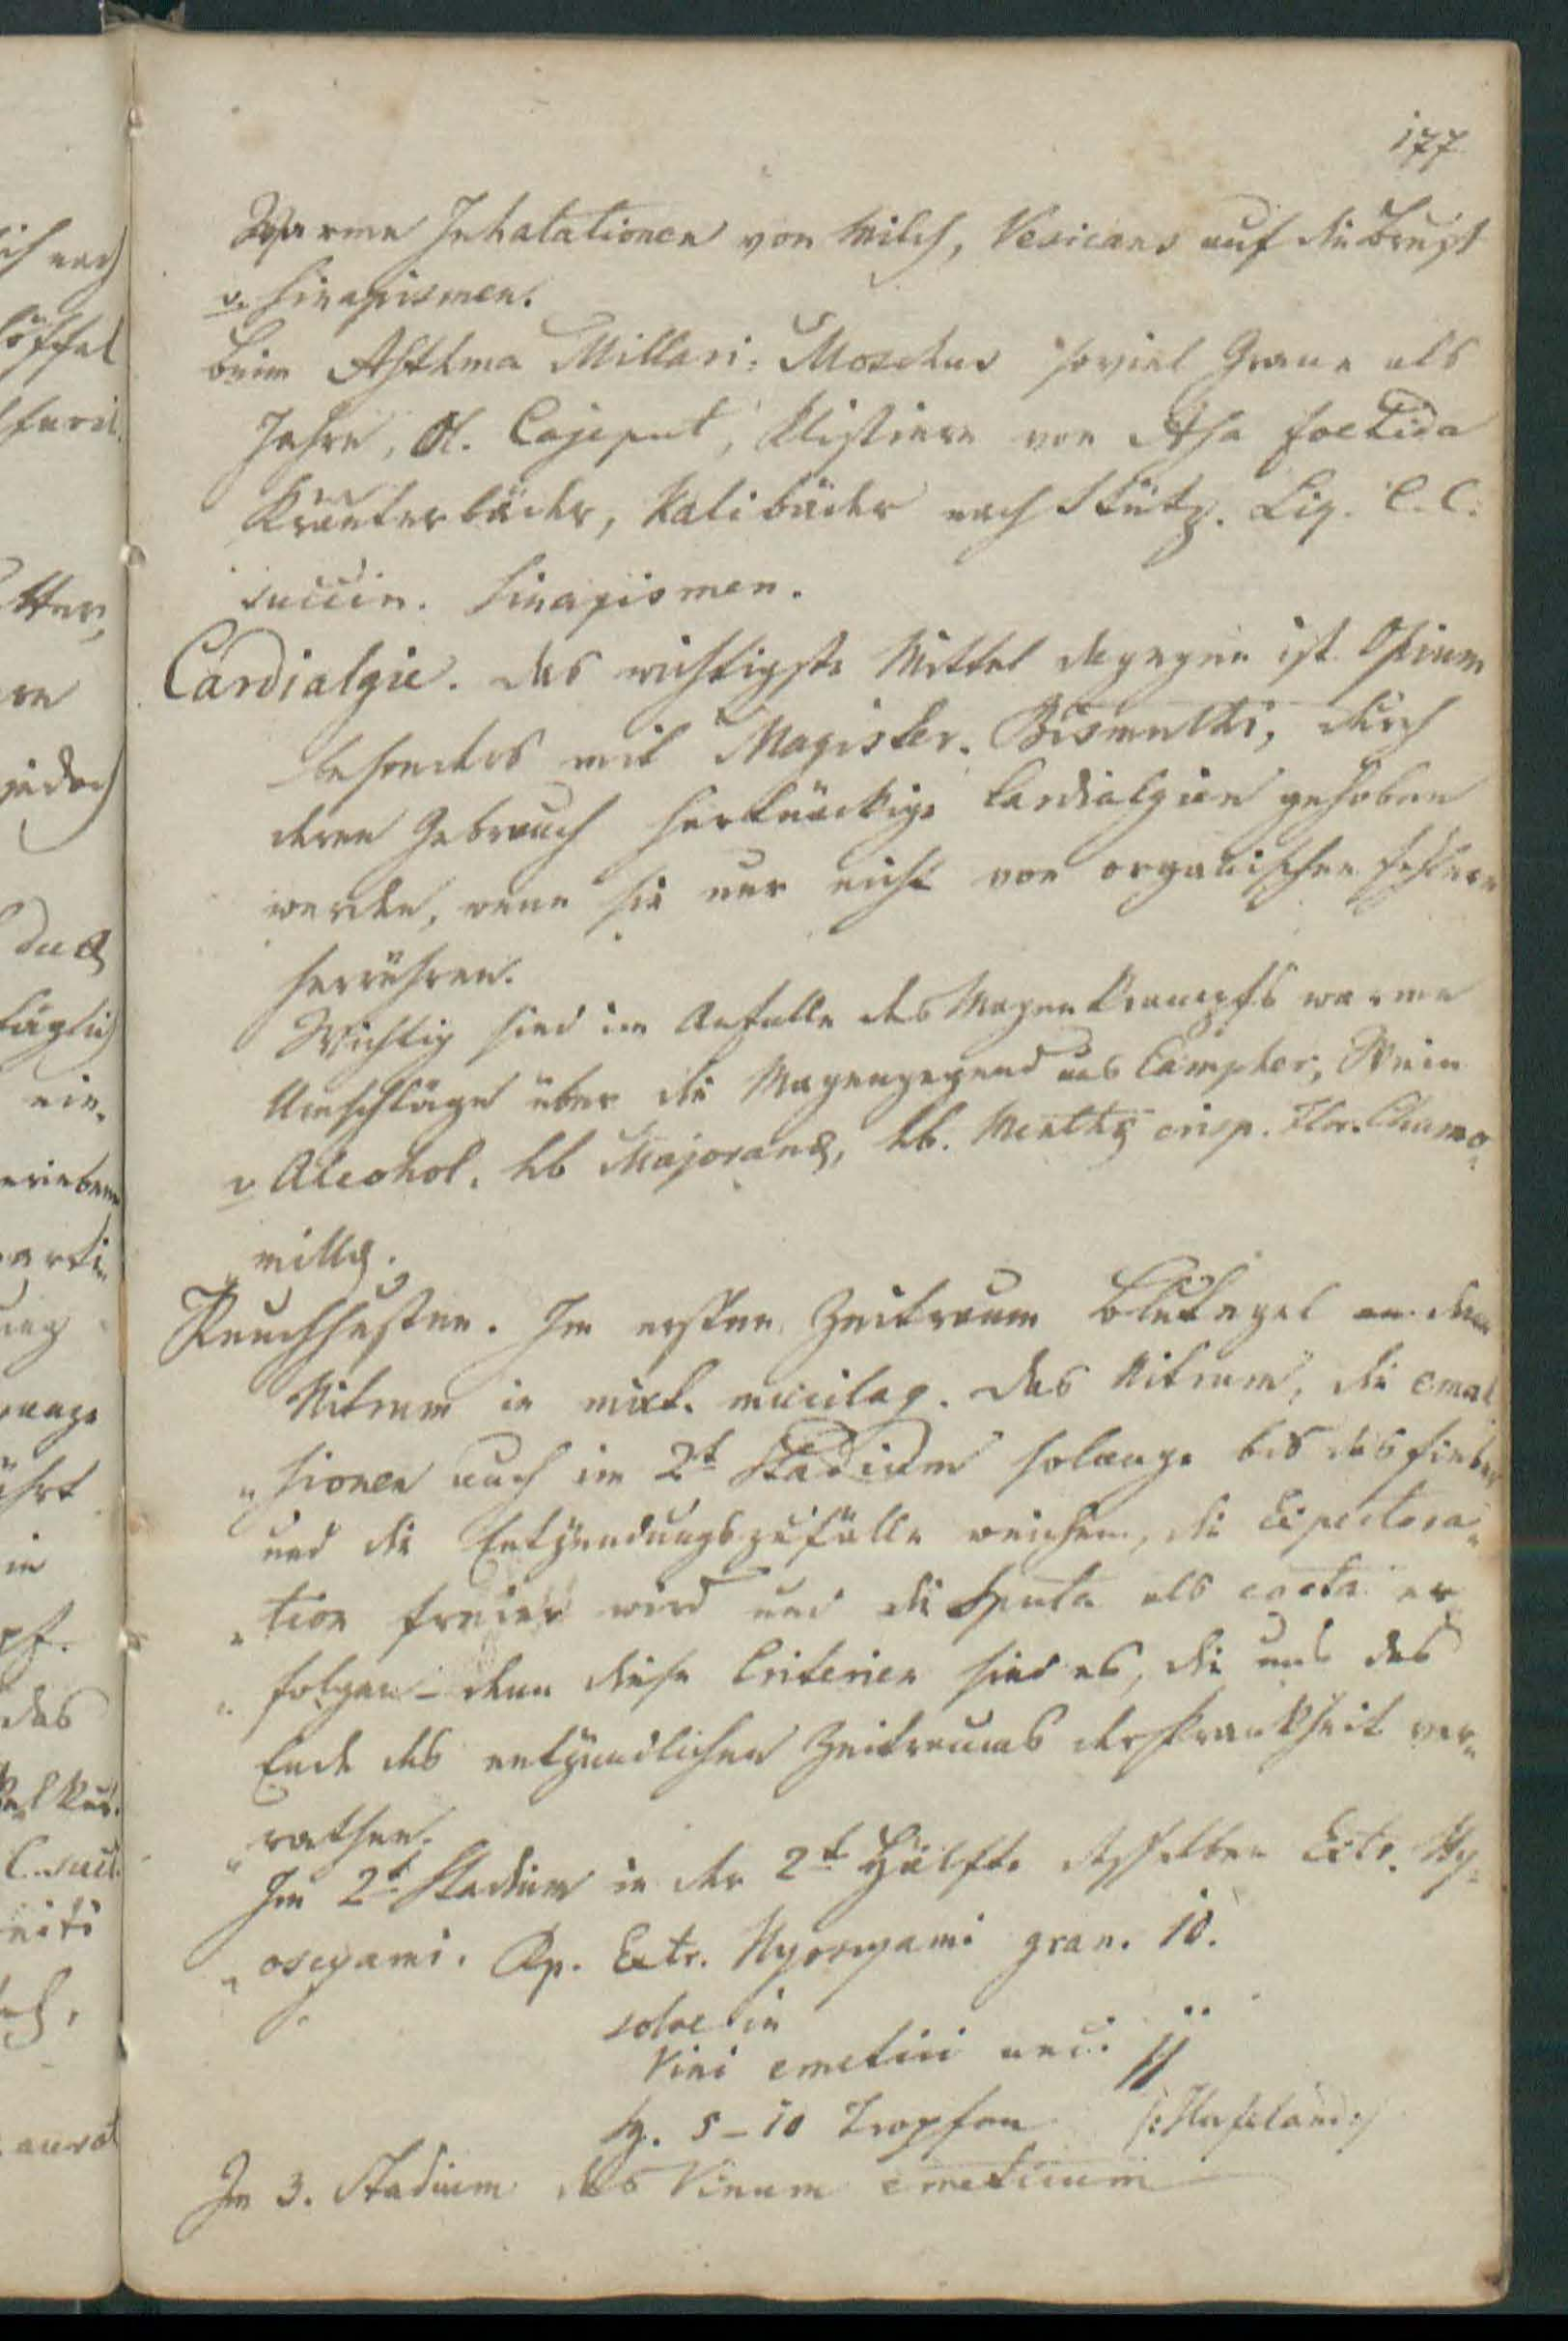 177
Warme Inhalationen von Milch, Vesicans auf die Brust
u. Sinapismen.
beim Asthma Millari: Moschus soviel Grane als
Jahre, Ol. Cajeput, Klistiere von Asa foetida
Kräuterbäder, Kalibäder nach Stütz. Liq. C. C.
succin. Sinapismen.
Cardialgie. das wichtigste Mittel dagegen ist Opium
besonders mit Magister. Bismuthi, durch
deren Gebrauch hartnäckige Cardialgien gehoben
werden, wenn sie nur nicht von organischen Fehlern
herrühren.
Wichtig sind im Anfalle des Magenkrampfs warme
Umschläge über die Magengegend aus Campher, Wein
u Alcohol. hb Majoranae, hb. Menthae crisp. Flor. Chamo-
millae.
Keuchhusten. Im ersten Zeitraum Blutegel an den
Nitrum in mixt. mucilag. das Nitrum, die emul
"sionen auch im 2t Stadium solange bis das Fieber
und die Entzündungszufälle weichen, die Expectora-
"tion freier wird und die Sputa als cocta er
"folgen - denn diese Criterien sind es, die uns das
Ende des entzündlichen Zeitraums der Krankheit ver-
"rathen.
Im 2t Stadium in der 2t Hälfte desselben Extr. Hy-
"oscyami. Rp. Extr. Hyoscyami gran. 10.
solve in
Vini emetici unc. ij
Sg. 5-10 Tropfen /:Hufeland:/
Im 3. Stadium das Vinum emeticum